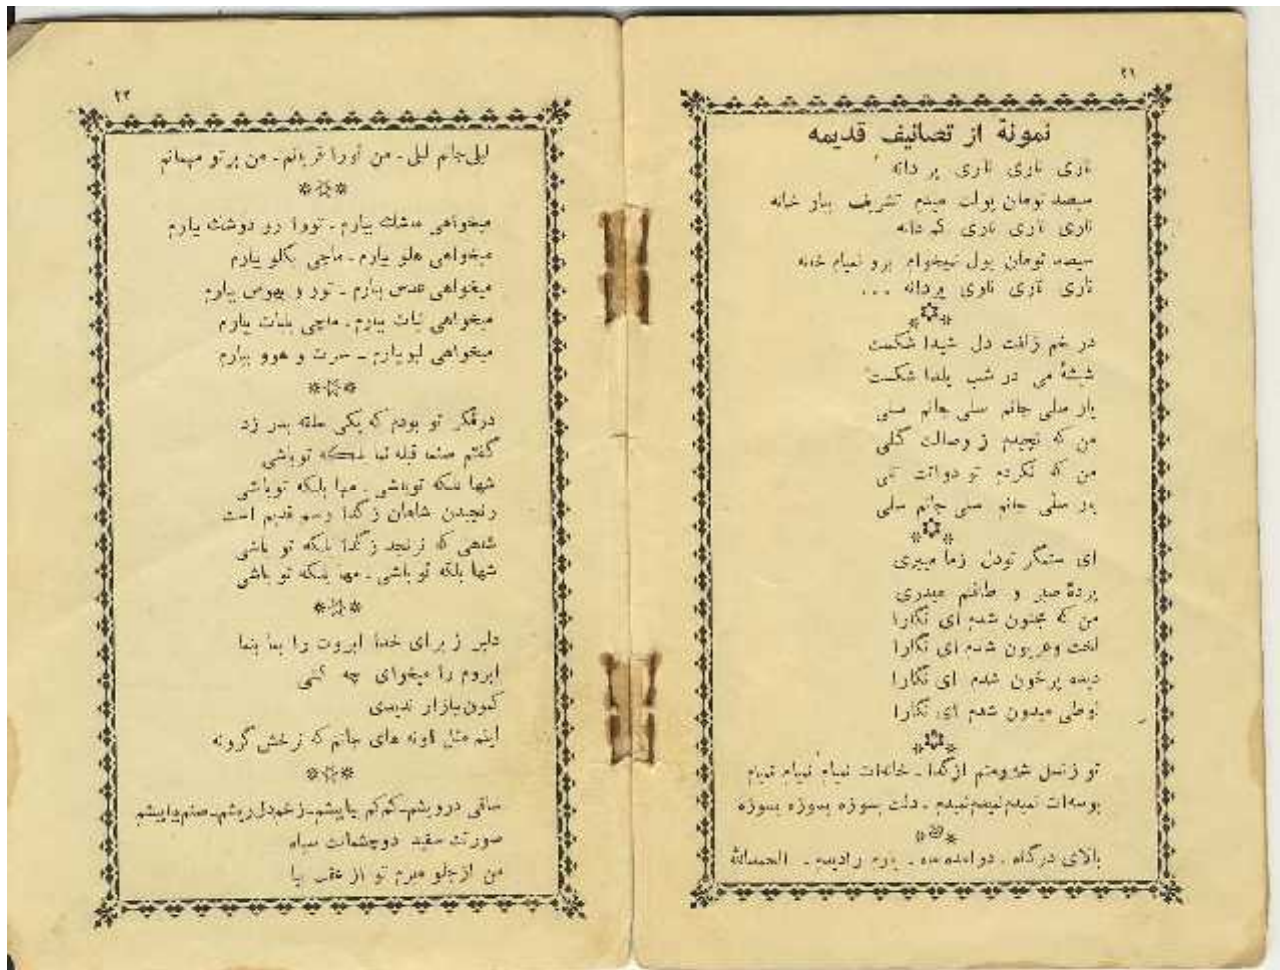 ۲۱
نمونهٔ از تصانیف قدیمه
ناری ناری ناری پر دانه
سیصد تومان پولت میدم تشریف بیار خانه
ناری ناری ناری کم دانه
سیصد تومان پول نمیخوام برو نمیام خانه
ناری ناری ناری پردانه ...
در خم زلفت دل شیدا شکست
شیشهٔ می در شب یلدا شکست
یار سلی جانم سلی جانم سلی
من که نچیدم ز وصالت گلی
من که نکردم تو
یار سلی جانم سلی جانم سلی
ای ستمگر تودل زما میبری
پردهٔ صبر و طاقتم میدری
من که مجنون شدم ای نگارا
لخت وعریون شدم ای نگارا
دیده پرخون شدم ای نگارا
لوطی میدون شدم ای نگارا
تو ز نسل شهر و منم از گدا ـ خانه‌ات نمیام نمیام نمیام
بوسه‌ات نمیدم نمیدم نمیدم ـ دلت بسوزه بسوزه بسوزه
بالای درگاه ـ ـ یارم رادیدم ـ الحمدالله
۲۲
لیلی جانم لیلی ـ من تورا قربانم ـ من برتو مهمانم
میخواهی ماشت بیارم ـ تورا رو دوشت بیارم
میخواهی هلو بیارم ـ ماچی بگلو بیارم
میخواهی عدس بیارم ـ تور و بهوس بیارم
میخواهی نبات بیارم ـ ماچی بلبات بیارم
میخواهی لبو بیارم ـ سرت و هوو بیارم
درفکر تو بودم که یکی حلقه بدر زد
گفتم صنما قبله نما بلکه توباشی
شها بلکه توباشی ـ مها بلکه توباشی
رنجیدن شاهان ز گدا رسم قدیم است
شاهی که نرنجد ز گدا بلکه تو باشی
شها بلکه تو باشی ـ مها بلکه تو باشی
دلبر ز برای خدا ابروت را بما بنما
ابروم را میخوای چه کنی
کمون بازار ندیدی
اینم مثل اونه های جانم که نرخش گرونه
ساقی درویشم ـ کم کم بیا پیشم ـ زخم دل ریشم ـ صنم بیا پیشم
صورتت سفید دوچشمانت سیاه
من ازجلو میرم تو از عقب بیا